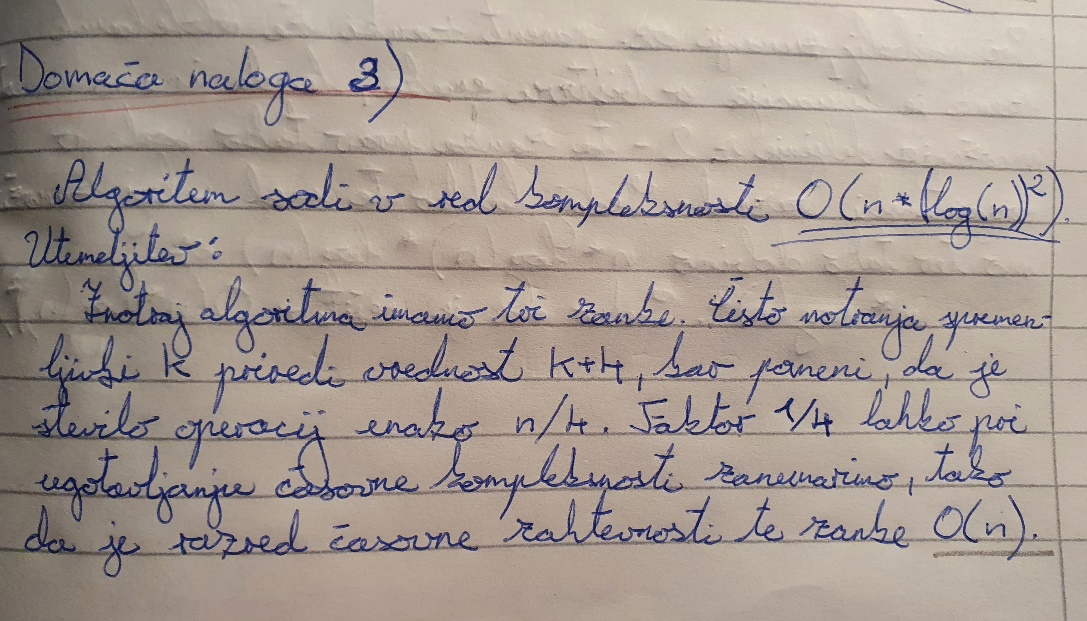 Domača naloga 3)
Algoritem sodi v red kompleksnosti O(n*(log(n))²).
Utemeljitev:
Znotraj algoritma imamo tri zanke. Čisto notranja spremen-
ljivki k priredi vrednost k+4, kar pomeni, da je
število operacij enako n/4. Faktor 1/4 lahko pri
ugotavljanju časovne kompleksnosti zanemarimo, tako
da je razred časovne zahtevnosti te zanke O(n).